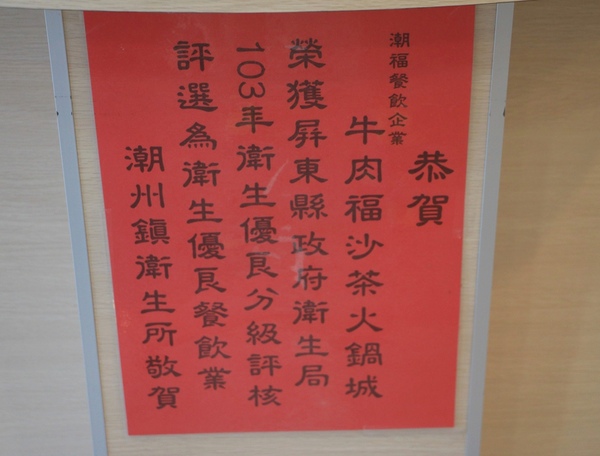 恭賀
潮福餐飲企業
牛肉福沙茶火鍋城
榮獲屏東縣政府衛生局
103年衛生優良分級評核
評選為衛生優良餐飲業
潮州鎮衛生所敬賀